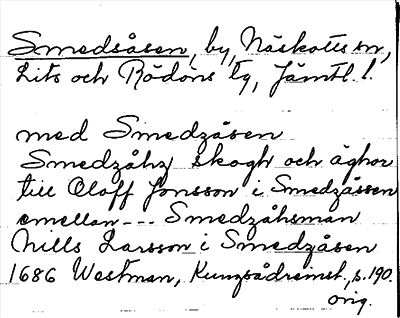 Smedsåsen, by, Näskotts sn,
Lits och Rödöns tg, Jämtl. l.
med Smedzåsen
Smedzåhz skogh och äghor
till Oloff Jonsson i Smedzåssen
emellan --- Smedzåhsman
Nills Larsson i Smedzåsen
1686 Westman, Kungsådreinst., s. 190.
orig.